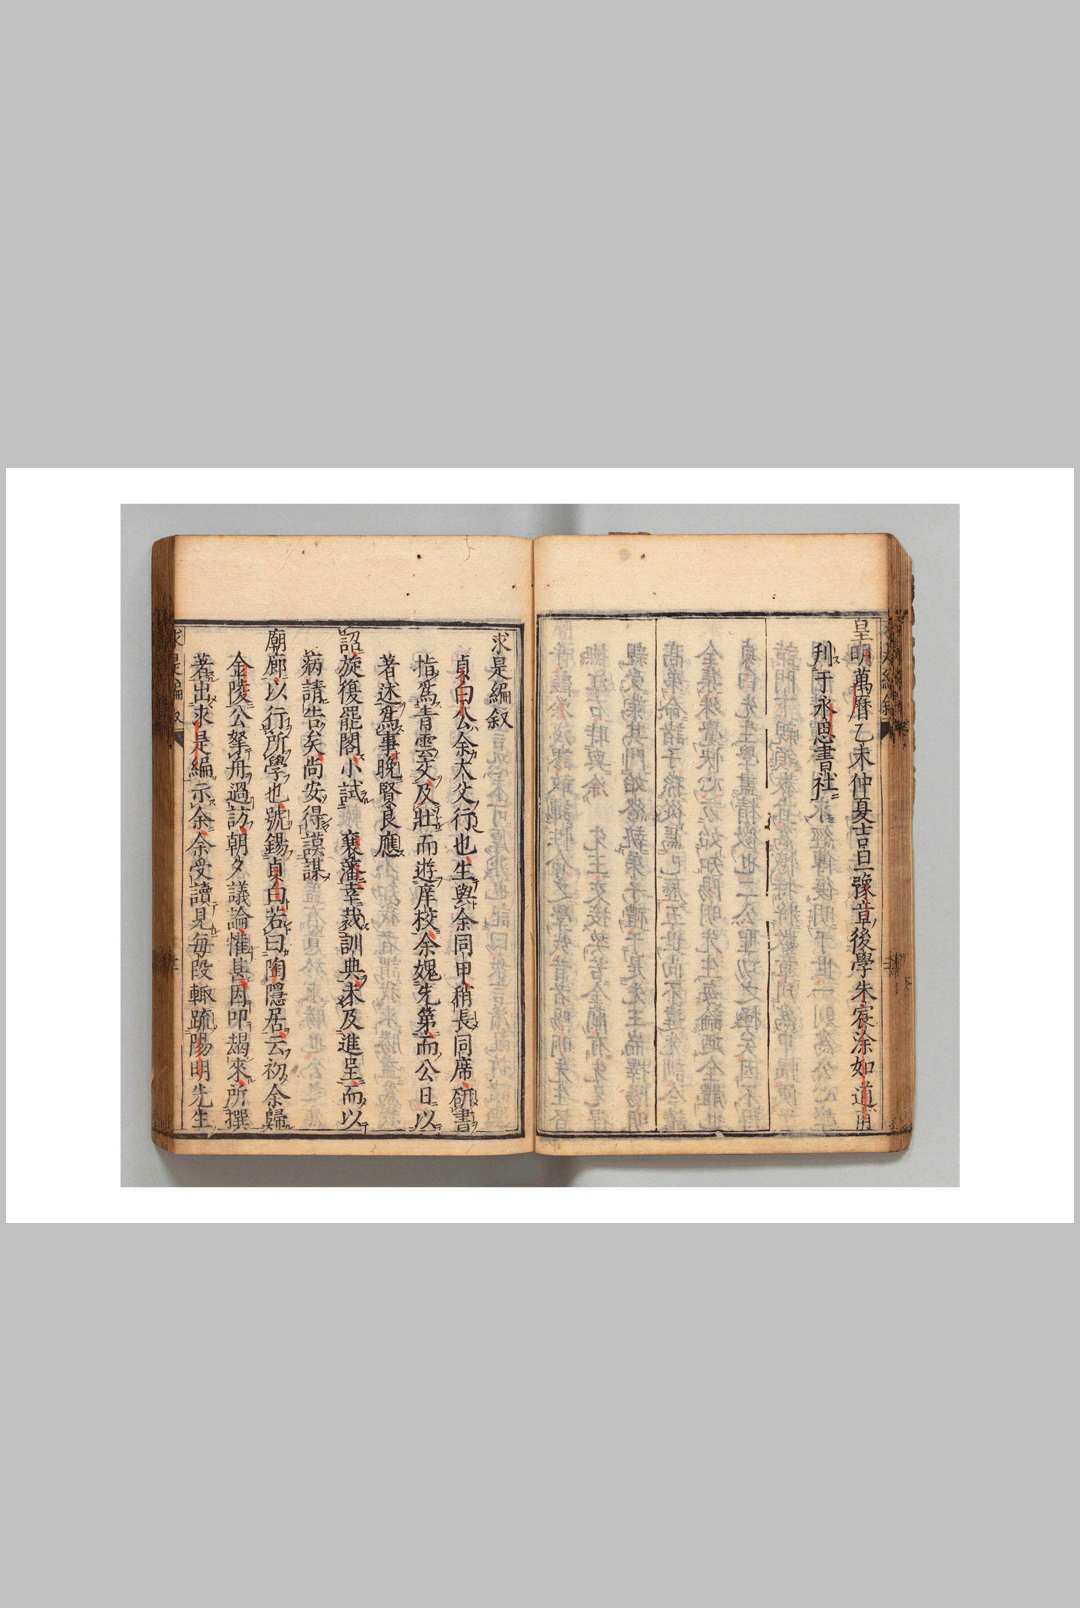 皇明萬曆乙未仲夏吉旦豫章後學朱家涂如道
刋于永思書社
求是編叙
貞曰公余大父行也生與余同甲稍長同席研書
指爲青雲交及壯而遊庠校余媿先第而公日以
著述爲事晚賢良應
詔旋復罷閣小試襄藩幸裁訓典未及進呈而以
病請告矣尚安得謨謀
廟廊以行所學也號錫貞曰若曰陶隱居云初余歸
金陵公拏舟過訪朝夕議論惟甚因叩朅來所撰
著出求是編示余余受讀見每段輙疏陽明先生
求是編叙